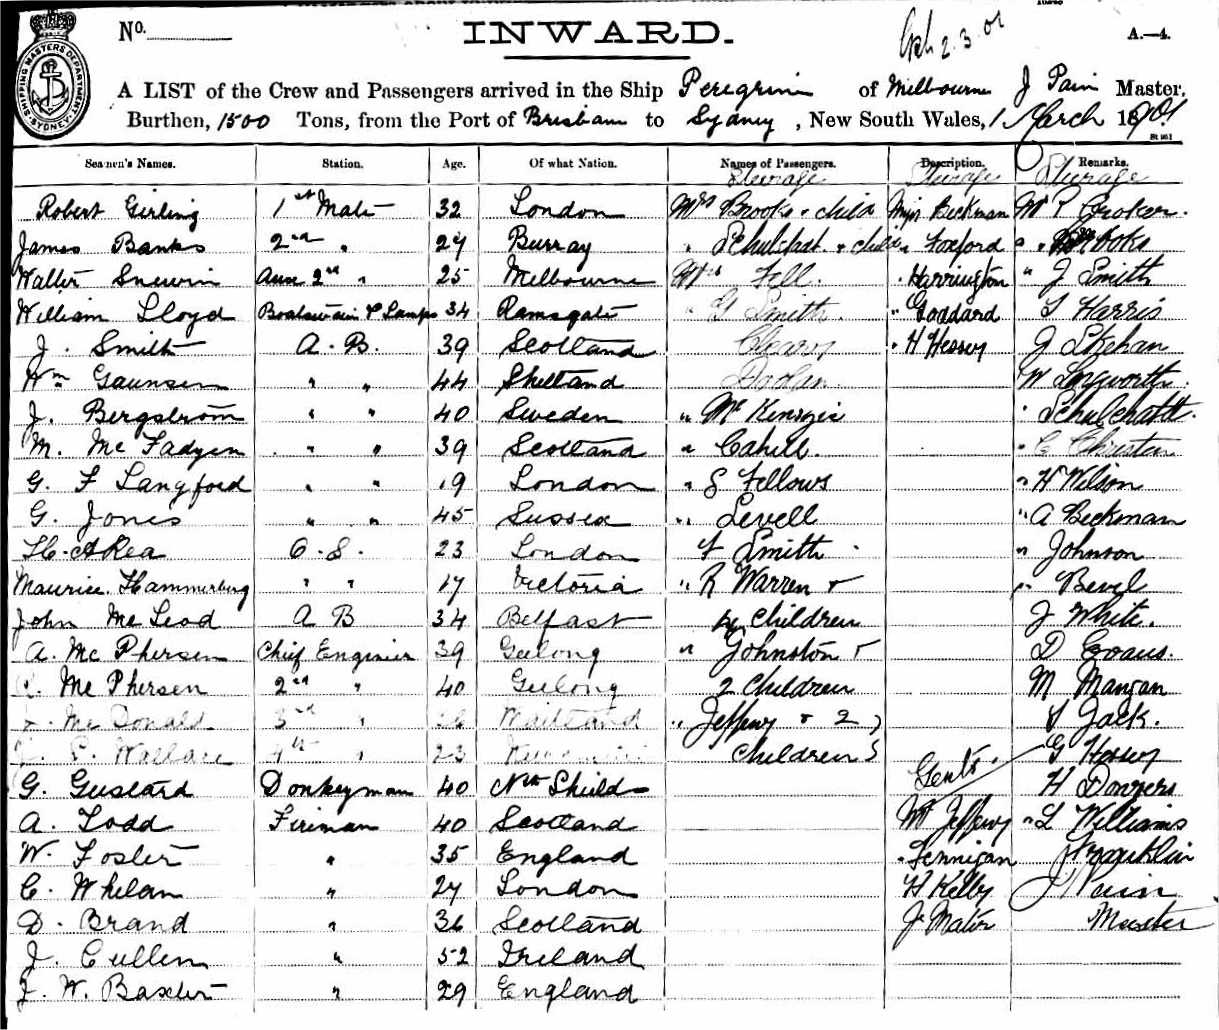 No. INWARD. 2.3.01 A.—4.
SHIPPING MASTERS DEPARTMENT SYDNEY
A LIST of the Crew and Passengers arrived in the Ship Peregrine of Melbourne J Pain Master,
Burthen, 1500 Tons, from the Port of Brisbane to Sydney, New South Wales, 1 March 1901
Seamen's Names. Station. Age. Of what Nation. Names of Passengers. Description. Remarks.
Steerage Steerage Steerage
Robert Girling 1st Mate 32 London Mrs Brooks & child Miss Beckman Mr P Croker.
James Banks 2nd " 27 Burray " Schulstadt & child " Foxford " " Brooks
Walter Snewin Aux 2nd " 25 Melbourne Mrs Fell. " Harrington " J Smith
William Lloyd Boatswain & Lamps 34 Ramsgate " G Smith. " Goddard S Harris
J. Smith A.B. 39 Scotland Cleary " H Hessey J Skehan
Wm Gaunsen " " 44 Shetland Doolan W Longworth.
J. Bergstrom " " 40 Sweden " McKenzie " Schulchatdt.
M. McFadyen " " 39 Scotland " Cahill. " C Christian
G. F Langford " " 19 London " S Fellows " H Wilson
G. Jones " " 45 Sussex " Levell " A Beckman
H. A Rea O.S. 23 London F Smith " Johnson
Maurice Hammerberg " " 17 Victoria " R Warren & " Bevel
John McLeod A B 34 Belfast 4 Children J White.
A. McPhersen Chief Enginier 39 Geelong " Johnston & D Evans.
McPhersen 2nd " 40 Geelong 2 Children M Mangan
McDonald 3rd " Maitland " Jeffery & 2 } S Jack.
Wallace 4th " 23 Children } G Hessey
G. Gustard Donkeyman 40 Nth Shields Gents. H Dongers
A. Todd Fireman 40 Scotland Mr Jeffery " L Williams
W. Foster " 35 England " Fennigan J Franklin
C. Whelan " 27 London H Kelly J Pain
D. Brand " 36 Scotland J. Mator Master
J. Cullen " 52 Ireland
J. W. Baxter " 29 England